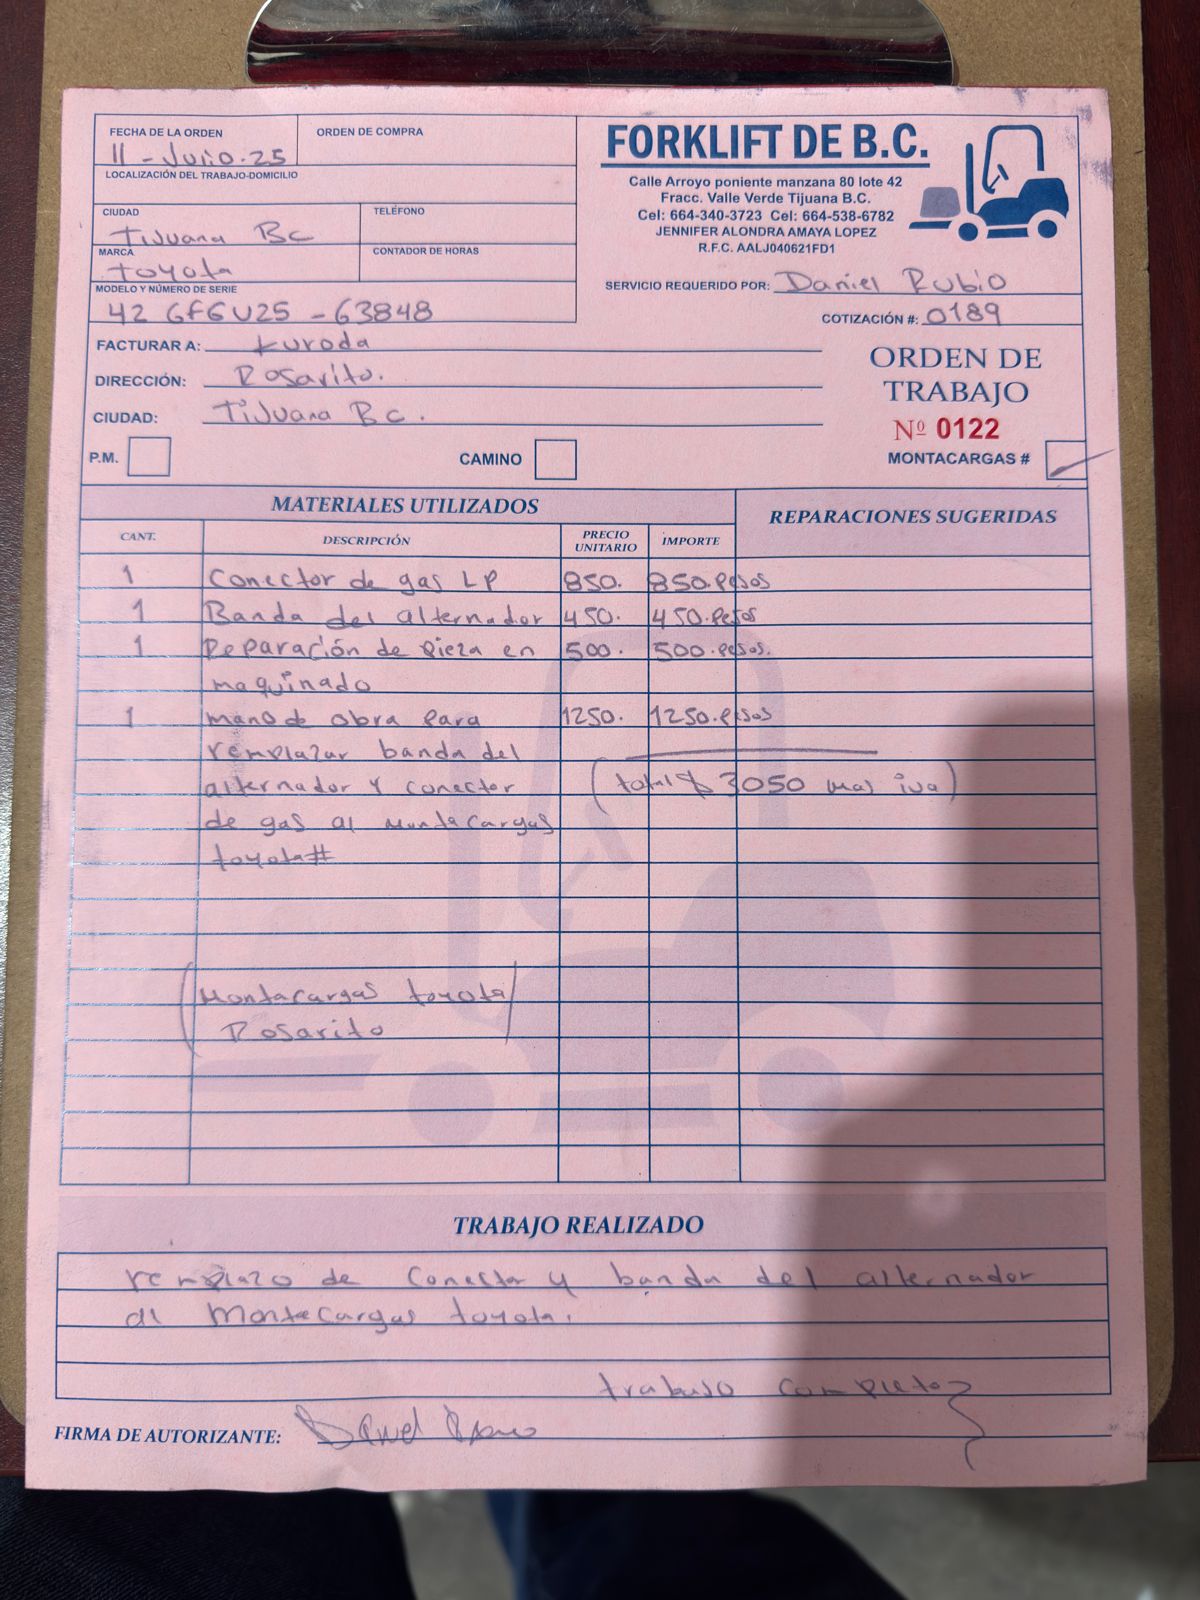 FECHA DE LA ORDEN
11 - Julio. 25
ORDEN DE COMPRA
LOCALIZACIÓN DEL TRABAJO-DOMICILIO
CIUDAD
Tijuana Bc
TELÉFONO
MARCA
toyota
CONTADOR DE HORAS
MODELO Y NÚMERO DE SERIE
42 6FGU25 - 63848
FORKLIFT DE B.C.
Calle Arroyo poniente manzana 80 lote 42
Fracc. Valle Verde Tijuana B.C.
Cel: 664-340-3723 Cel: 664-538-6782
JENNIFER ALONDRA AMAYA LOPEZ
R.F.C. AALJ040621FD1
SERVICIO REQUERIDO POR: Daniel Rubio
COTIZACIÓN #: 0189
FACTURAR A: Kuroda
DIRECCIÓN: Rosarito.
CIUDAD: Tijuana Bc.
ORDEN DE
TRABAJO
Nº 0122
P.M.
CAMINO
MONTACARGAS #
MATERIALES UTILIZADOS
REPARACIONES SUGERIDAS
CANT. DESCRIPCIÓN PRECIO UNITARIO IMPORTE
1 Conector de gas LP 850. 850.pesos
1 Banda del alternador 450. 450.pesos
1 Reparación de pieza en 500. 500.pesos.
maquinado
1 mano de obra para 1250. 1250.pesos
remplazar banda del
alternador y conector (total $ 3050 mas iva)
de gas al Montacargas
toyota#
(Montacargas toyota)
Rosarito
TRABAJO REALIZADO
remplazo de conector y banda del alternador
al Montacargas toyota.
trabajo completo
FIRMA DE AUTORIZANTE: